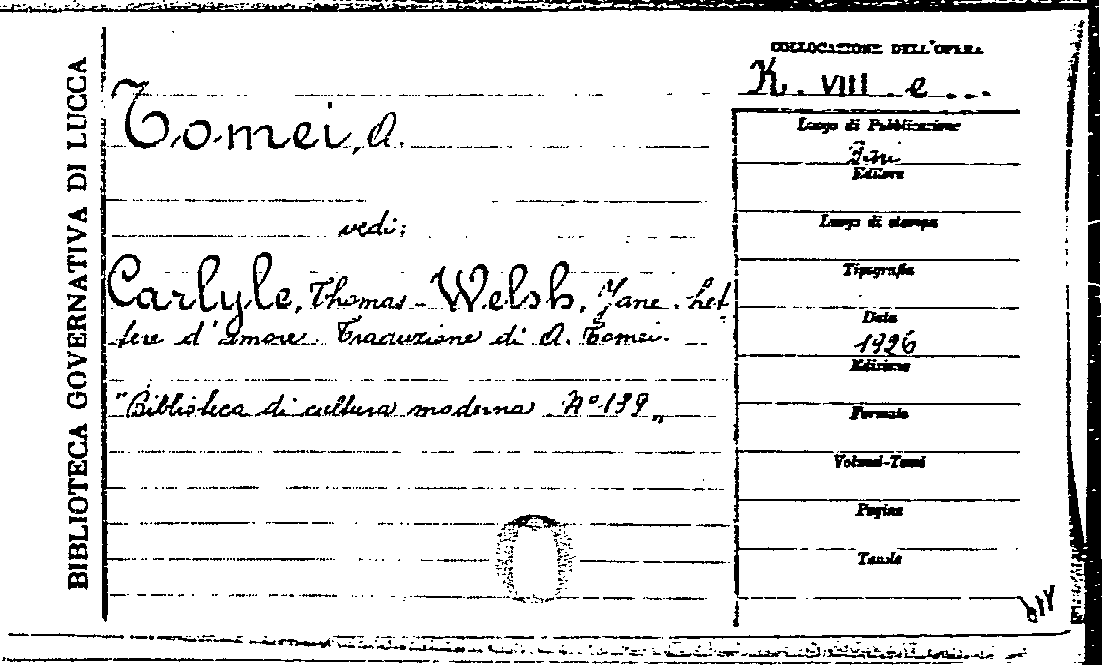 BIBLIOTECA GOVERNATIVA DI LUCCA
COLLOCAZIONE DELL'OPERA
K. VIII e ...
Tomei, A.
vedi:
Carlyle, Thomas - Welsh, Jane. Let
tere d'amore. Traduzione di A. Tomei.
"Biblioteca di cultura moderna N° 139„
Luogo di Pubblicazione
Editore
Luogo di stampa
Tipografia
Data
1926
Edizione
Formato
Volumi-Tomi
Pagine
Tavole